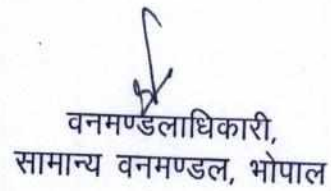 वनमण्डलाधिकारी,
सामान्य वनमण्डल, भोपाल